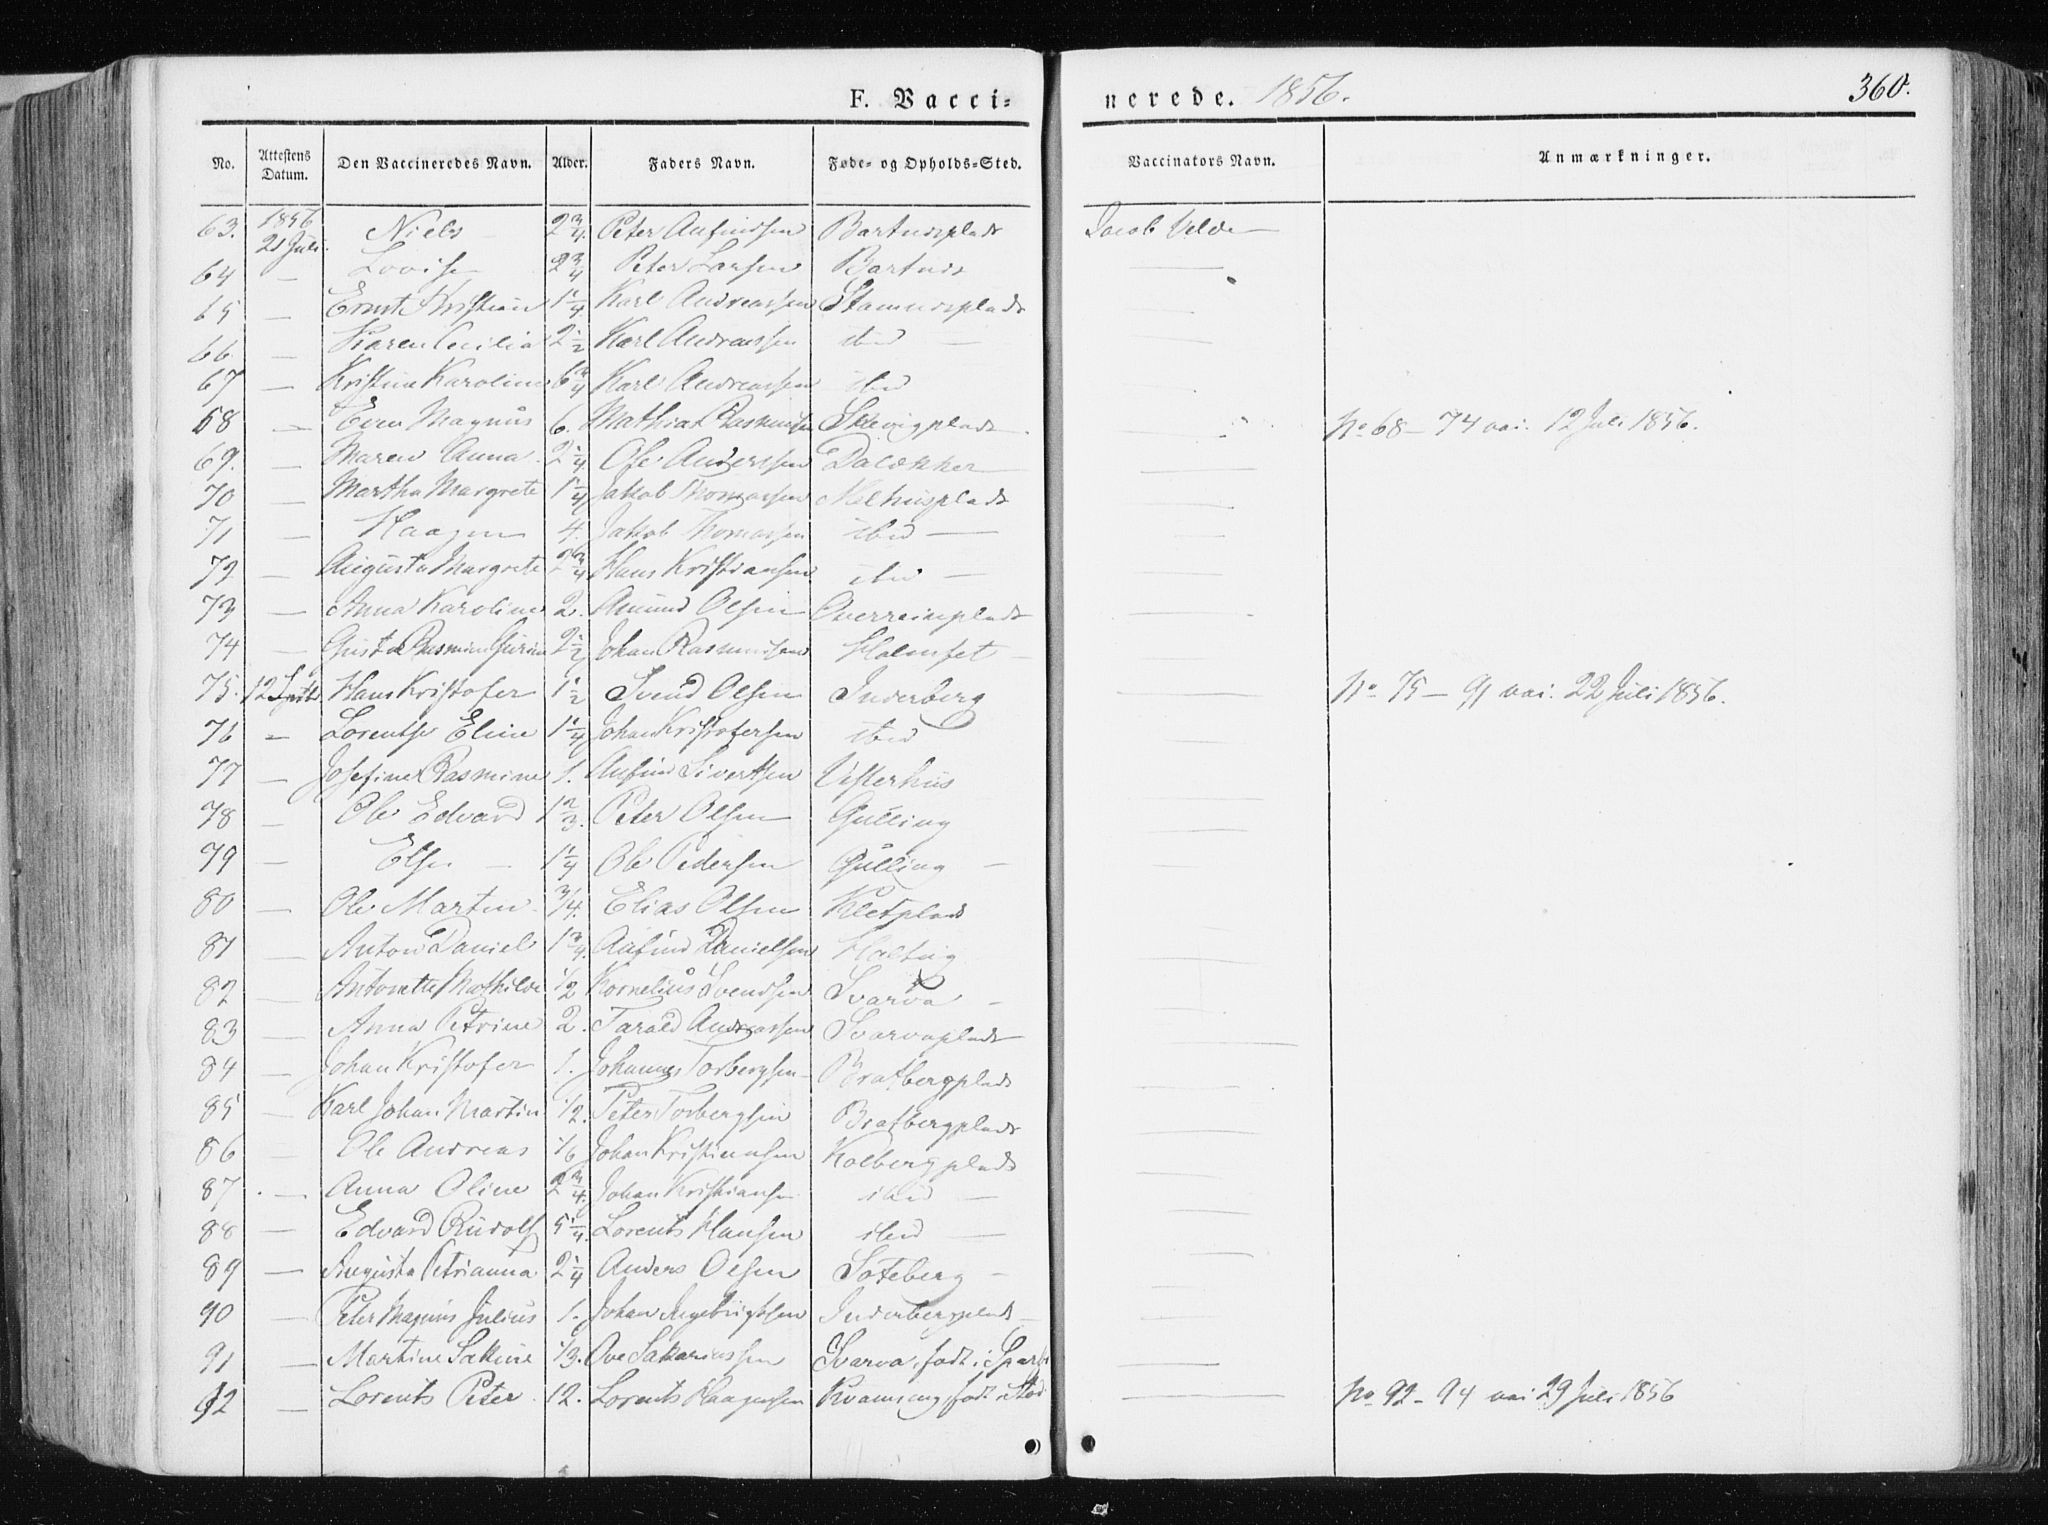 F. Vacci= nerede. 1856. 360.
No. Attestens Datum. Den Vaccineredes Navn. Alder. Faders Navn. Føde- og Opholds-Sted. Vaccinators Navn. Anmærkninger.
63. 1856 21 Juli Niels 2 3/4. Peter Anfindsen Bartnesplads Jacob Velde
64 — Lovise 2 3/4 Peter Larsen Bartnes —
65 — Ernst Kristian 1 1/4 Karl Andreassen Stamnesplads —
66. — Karen Cecilia 2 1/2 Karl Andreassen ibid — —
67 — Kristine Karoline 6 3/4 Karl Andreassen ibid —
68 — Even Magnus 6. Mathias Rasmussen Skevigplads No 68 — 74 vac. 12 Juli 1856.
69. — Maren Anna 2 1/4 Ole Anderssen Dalækker —
70 — Martha Margrete 1 1/4 Jakob Thomassen Melhusplads —
71 — Haagen 4. Jakob Thomassen ibid — —
72 — Augusta Margrete 2 3/4 Hans Kristiansen ibid — —
73 — Anna Karoline 2. Amund Olsen Overreinplads —
74 — Gusta Rasmine Gurine 2 1/2 Johan Rasmussen Holmset — —
75. 12 Septbr Hans Kristofer 1 1/2 Svend Olsen Inderberg — No 75 — 91 vac. 22 Juli 1856.
76 — Lorentse Eline 1 1/4 Johan Kristofersen ibid —
77 — Josefine Rasmine 1. Anfind Sivertsen Vesterhus —
78 — Ole Edvard 1 2/3. Peter Olsen Gulling —
79 — Else — 1 1/4 Ole Pedersen Gulling — —
80 — Ole Martin 3/4. Elias Olsen Kletplads —
81 — Anton Daniel 1 3/4. Anfind Danielsen —
82 — Antonette Mathilde 1/2 Kornelius Svendsen Svarva — —
83 — Anna Petrine 2. Tarald Andreassen Svarvaplads —
84 — Johan Kristofer 1. Johannes Torbergsen Bratbergplads —
85 — Karl Johan Martin 1/2. Peter Torbergsen Bratbergplads —
86 — Ole Andreas 1/6 Johan Kristiansen Kolbergplads —
87 — Anna Oline 2 3/4. Johan Kristiansen ibid — —
88 — Edvard Rudolf 5 1/4. Lorents Hansen ibid — —
89 — Augusta Petrianna 2 1/4 Anders Olsen Soteberg — —
90 — Peter Magnus Julius 1. Johan Ingebrigtsen Inderbergplads —
91 — Martine Sakine 1/3. Ove Sakariassen Svarva, født i Sparb —
92 — Lorents Peter 12. Lorents Haagensen Kvamseng, født i Stod — No 92 — 94 vac 29 Juli 1856